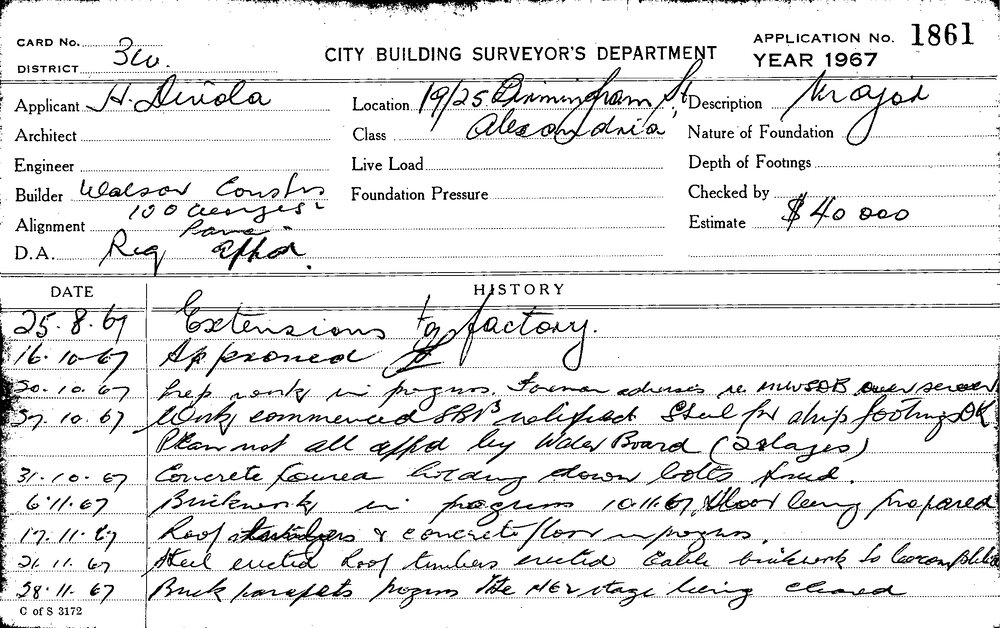 CARD No. 3w.
CITY BUILDING SURVEYOR'S DEPARTMENT
APPLICATION No. 1861
DISTRICT
YEAR 1967
Applicant H.
Location 19/25 Birmingham St
Alexandria
Description Major
Architect
Class
Nature of Foundation
Engineer
Live Load
Depth of Footings
Builder Watson Constrs
Foundation Pressure
Checked by
Alignment
Estimate $40 000
D.A. Req Appd.
DATE
HISTORY
25.8.67 Extensions to factory.
16.10.67 Approved
20.10.67 Prep work in progress. Foreman advises re MWS&DB over sewer
27.10.67 Work commenced notified Steel for strip footings OK
Plan not all appd by Water Board (2 stages)
31.10.67 Concrete poured holding down bolts fixed.
6.11.67 Brickwork in progress 10.11.67 floor being prepared
17.11.67 Roof & concrete floor in progress.
21.11.67 Steel erected Roof timbers erected Gable brickwork to be completed
28.11.67 Brick parapets progress the stage being cleared
C of S 3172